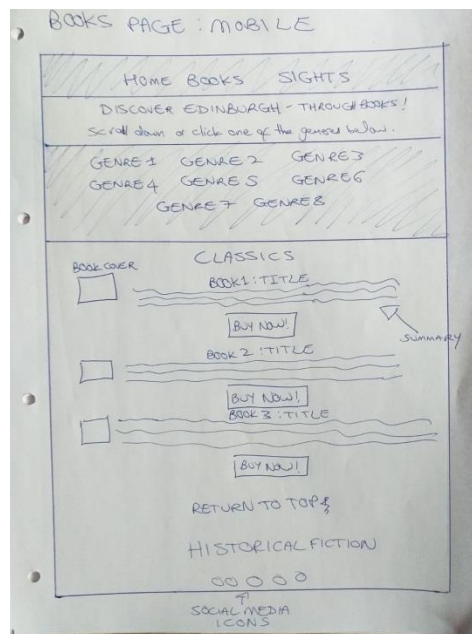 BOOKS PAGE: MOBILE
HOME BOOKS SIGHTS
DISCOVER EDINBURGH - THROUGH BOOKS!
Scroll down or click one of the genres below.
GENRE 1 GENRE 2 GENRE 3
GENRE 4 GENRE 5 GENRE 6
GENRE 7 GENRE 8
CLASSICS
BOOK COVER
BOOK 1: TITLE
BUY NOW!
SUMMARY
BOOK 2: TITLE
BUY NOW!
BOOK 3: TITLE
BUY NOW!
RETURN TO TOP
HISTORICAL FICTION
SOCIAL MEDIA
ICONS